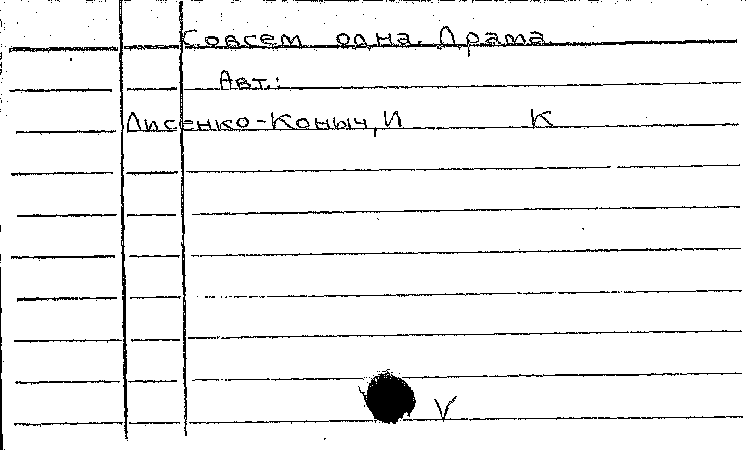 Совсем одна. Драма.
Авт.:
Лисенко-Коныч, И К
V